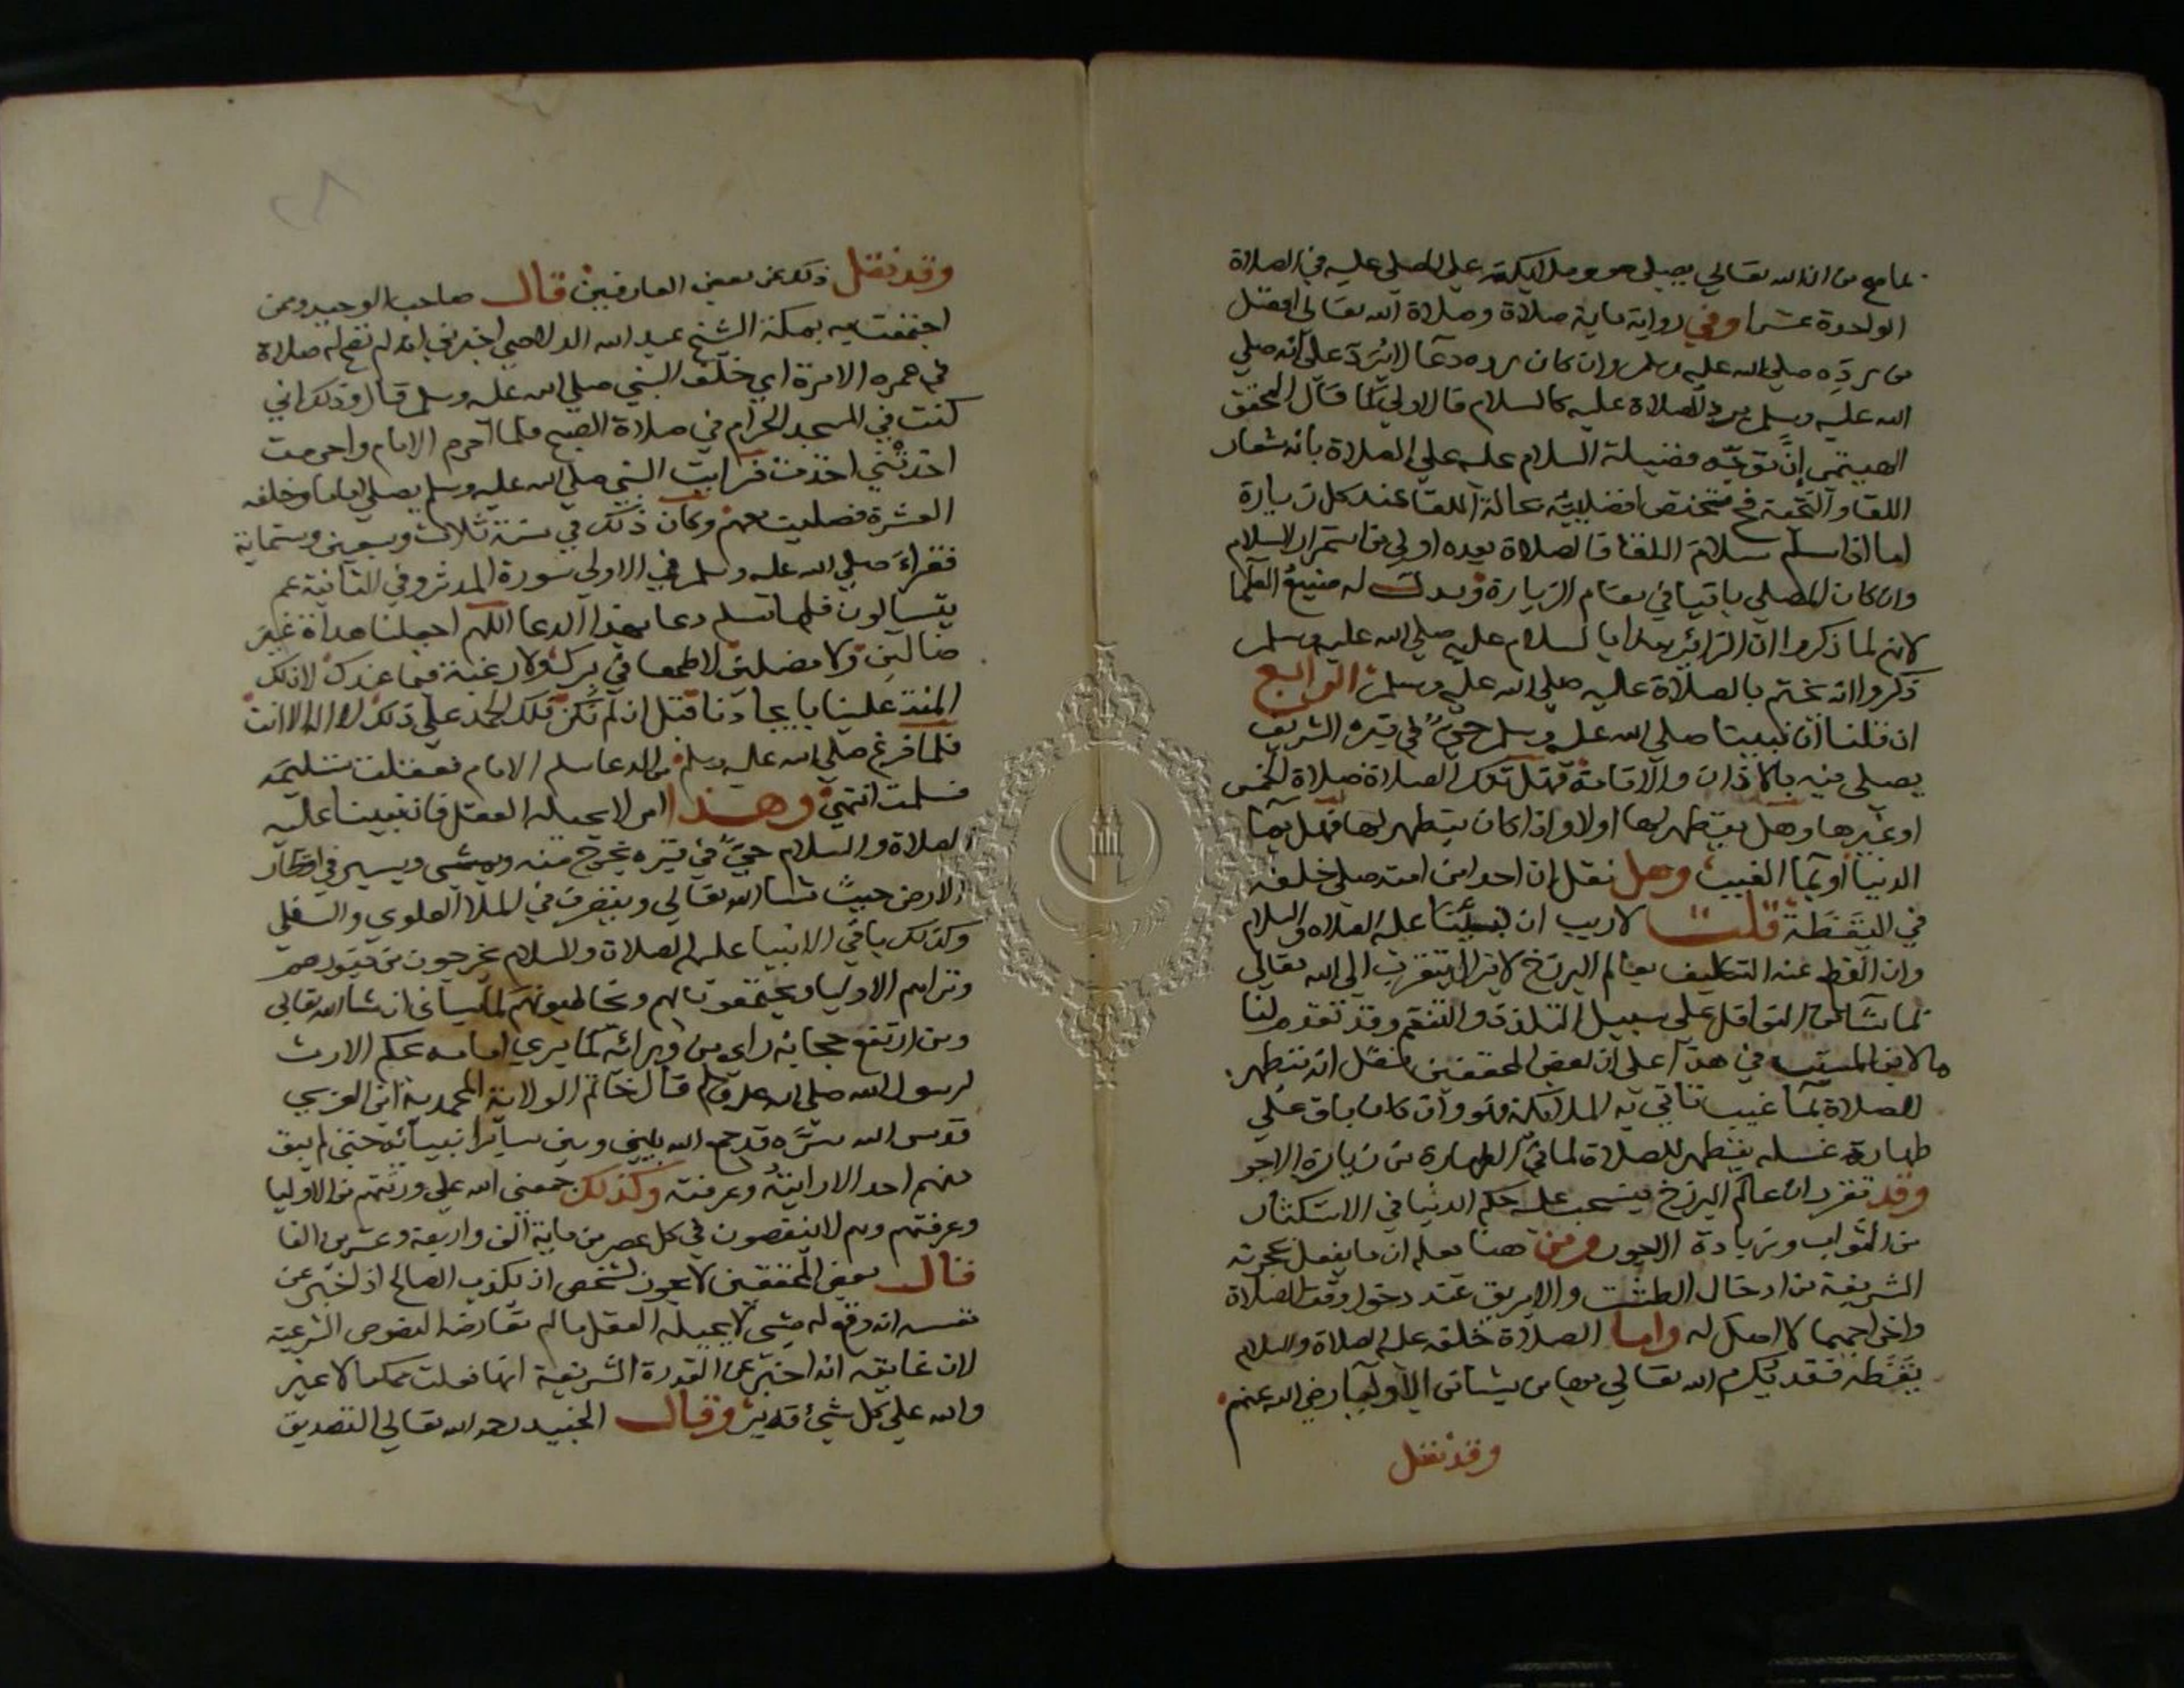 لما صح من ان الله تعالي يصلي هو وملايكته علي المصلي عليه في الصلاة
الواحدة عشرا وفي رواية ماية صلاة وصلاة الله تعالي افضل
من رده صلي الله عليه وسلم وان كان رده دعا لا يرد علي انه صلي
الله عليه وسلم يرد الصلاة عليه كالسلام فالاولي كما قال المحقق
الهيتمي ان توجه فضيلة السلام عليه علي الصلاة بانه شعار
اللقا والتحية فح تختص افضليته بحالة اللقا عند كل زيارة
اما اذا سلم سلام اللقا فالصلاة بعده اولي من استمرار السلام
وان كان المصلي باقيا في مقام الزيارة ويدل له صنيع العلما
لانهم لما ذكروا ان الزائر يبدا بالسلام عليه صلي الله عليه وسلم
ذكروا انه يختم بالصلاة عليه صلي الله عليه وسلم الرابع
ان قلنا ان نبينا صلي الله عليه وسلم حي في قبره الشريف
يصلي فيه باذان والاقامة فهل تلك الصلاة صلاة الخمس
او غيرها وهل يتطهر لها اولا واذا كان يتطهر لها فهل بما
الدنيا او بما الغيب وهل نقل ان احدا من امته صلي خلفه
في اليقظة قلت لا ريب ان نبينا عليه الصلاة والسلام
وان انقطع عنه التكليف بعالم البرزخ لا يزال يتقرب الي الله تعالي
بما شا من النوافل علي سبيل التلذذ والتنعم وقد تقدم لنا
ما لابن المسيب في هذا علي ان بعض المحققين نقل انه يتطهر
للصلاة بما غيب تاتي به الملايكة فهو وان كان باق علي
طهارة غسله يتطهر للصلاة لما في الطهارة من زيادة الاجر
وقد تقرر ان عالم البرزخ ينسحب عليه حكم الدنيا في الاستكثار
من الثواب وزيادة الاجور ومن هنا يعلم ان ما يفعل بحجرته
الشريفة من ادخال الطشت والابريق عند دخول وقت الصلاة
واخراجهما لا اصل له واما الصلاة خلفه عليه الصلاة والسلام
يقظة فقد يكرم الله تعالي بها من يشا من الاوليا رضي الله عنهم
وقد نقل
وقد نقل ذلك عن بعض العارفين قال صاحب الوحيد وممن
اجتمعت به بمكة الشيخ عبد الله الدلاصي اخبرني انه لم تصح له صلاة
في عمره الا مرة اي خلف النبي صلي الله عليه وسلم قال وذلك اني
كنت في المسجد الحرام في صلاة الصبح فلما احرم الامام واحرمت
اخذتني اخذة فرايت النبي صلي الله عليه وسلم يصلي اماما وخلفه
العشرة فصليت معهم وكان ذلك في سنة ثلاث وسبعين وستماية
فقراء صلي الله عليه وسلم في الاولي سورة المدثر وفي الثانية عم
يتسالون فلما سلم دعا بهذا الدعا اللهم اجعلنا هداة غير
ضالين ولا مضلين لا طمعا في برك ولا رغبة فيما عندك لان لك
المنة علينا بايجادنا قبل ان لم نكن فلك الحمد علي ذلك لا اله الا انت
فلما فرغ صلي الله عليه وسلم من الدعا سلم الامام فعقلت تسليمه
فسلمت انتهي وهذا امر لا يحيله العقل فان نبينا عليه
الصلاة والسلام حي في قبره يخرج منه ويمشي ويسير في اقطار
الارض حيث شا الله تعالي ويتصرف في الملا العلوي والسفلي
وكذلك باقي الانبيا عليهم الصلاة والسلام يخرجون من قبورهم
وتراهم الاوليا ويجتمعون بهم وتخاطبونهم لما سياتي ان شا الله تعالي
ومن ارتفع حجابه راي من ورائه كما يري امامه بحكم الارث
لرسول الله صلي الله عليه وسلم قال خاتم الولاية المحمدية ابن العربي
قدس الله سره قد جمع الله بيني وبين ساير انبيائه حتي لم يبق
منهم احد الا رايته وعرفته وكذلك جمعني الله علي ورثتهم من الاوليا
وعرفتهم وهم لا ينقصون في كل عصر من ماية الف واربعة وعشرين الفا
قال بعض المحققين لا يجوز لشخص ان يكذب الصالح اذا اخبر عن
نفسه انه وقع له شي لا يحيله العقل ما لم تعارضه النصوص الشرعية
لان غايته انه اخبر عن القدرة الشريفة انها فعلت ممكنا لا غير
والله علي كل شئ قدير وقال الجنيد رحمه الله تعالي التصديق